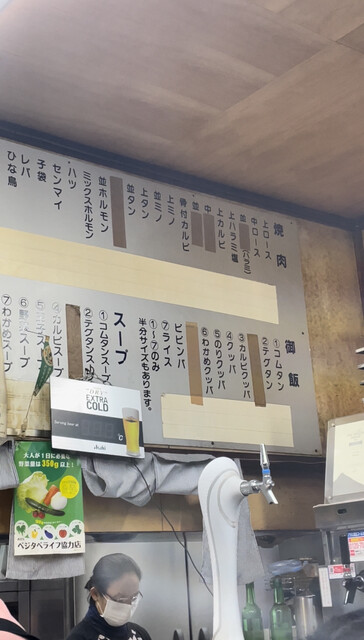 焼肉
上ロース
中ロース
並
(バラミ)
上ハラミ塩
上カルビ
中
並
骨付カルビ
上ミノ
並ミノ
上タン
並タン
並ホルモン
ミックスホルモン
ハツ
センマイ
子袋
レバ
ひな鳥
御飯
①コムタン
②テグタン
③カルビクッパ
④クッパ
⑤のりクッパ
⑥わかめクッパ
ビビンバ
⑦ライス
①〜⑦のみ
半分サイズもあります。
スープ
①コムタンスープ
②テグタンスープ
④カルビスープ
⑥野菜スープ
⑦わかめスープ
EXTRA
COLD
Asahi
大人が1日に必要な
野菜量は350g以上!
ベジタベライフ協力店